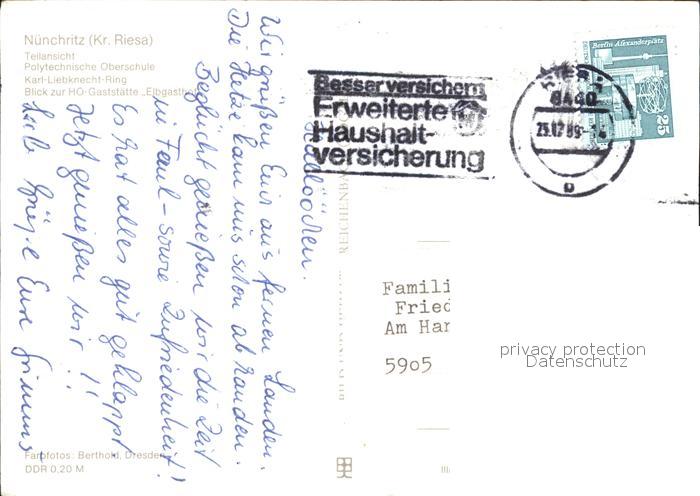 Nünchritz (Kr. Riesa)
Teilansicht
Polytechnische Oberschule
Karl-Liebknecht-Ring
Blick zur HO-Gaststätte „Elbgasthof
Hallööchen.
Wir grüßen Euch aus fernen Landen.
Die Hetze kam uns schon abhanden.
Beglückt genießen wir die Zeit
in Faul- sowie Zufriedenheit!
Es hat alles gut geklappt
Jetzt genießen wir!!
Liebe Grüße Eure
Farbfotos: Berthold, Dresden
DDR 0,20 M
Besser versichern
Erweiterte
Haushalt-
versicherung
RIESA
8400
Berlin, Alexanderplatz
25
Famili
Fried
Am Har
5905
privacy protection
Datenschutz